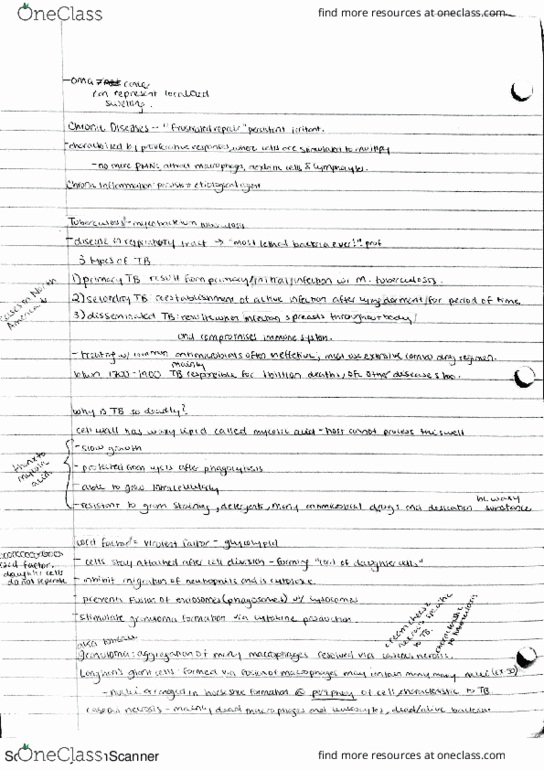 OneClass
find more resources at oneclass.com
-oma → cancer
can represent localized
swelling.
Chronic Diseases - "frustrated repair" persistent irritant.
-characterized by proliferative responses, where cells are stimulated to multiply
- no more PMNs, attract macrophages, plasma cells & lymphocytes.
Chronic inflammation: persists + etiological agent
Tuberculosis - mycobacterium tuberculosis
- disease in respiratory tract → "most lethal bacteria ever!" prof
3 types of TB
1) primary TB result from primary/initial/infection w/ M. tuberculosis.
2) secondary TB reestablishment of active infection after lying dormant/for period of time.
cases in North America
3) disseminated TB: results when infection spreads throughout body/
and compromises immune system.
- treating w/ common antimicrobials often ineffective; must use extensive combo drug regimen.
mainly
1700-1900 TB responsible for 1 billion deaths, other diseases too.
Why is TB so deadly?
cell wall has waxy lipid called mycolic acid - host cannot
- slow growth
- protected from lysis after phagocytosis
thanks to mycolic acid
- able to grow intracellularly
- resistant to gram staining, detergents, many antimicrobial drugs and desiccation
waxy substance
cord factor = virulent factor - glycolipid
cord factor. daughter cells do not seperate
- cells stay attached after cell division - forming "cord of daughter cells"
- inhibit migration of neutrophils and is cytotoxic
- prevents fusion of endosomes (phagosomes) w/ lysosomes
- stimulate granuloma formation via cytokine production.
characteristic to tuberculosis
aka tubercle
granuloma: aggregation of many macrophages resolved via necrosis.
Langhans giant cells: formed via fusion of macrophages may contain many many nuclei
- nuclei arranged in horseshoe formation @ periphery of cell, characteristic to TB
caseous necrosis - mainly dead macrophages and leukocytes, dead/alive bacteria.
OneClass
Scanner
find more resources at oneclass.com